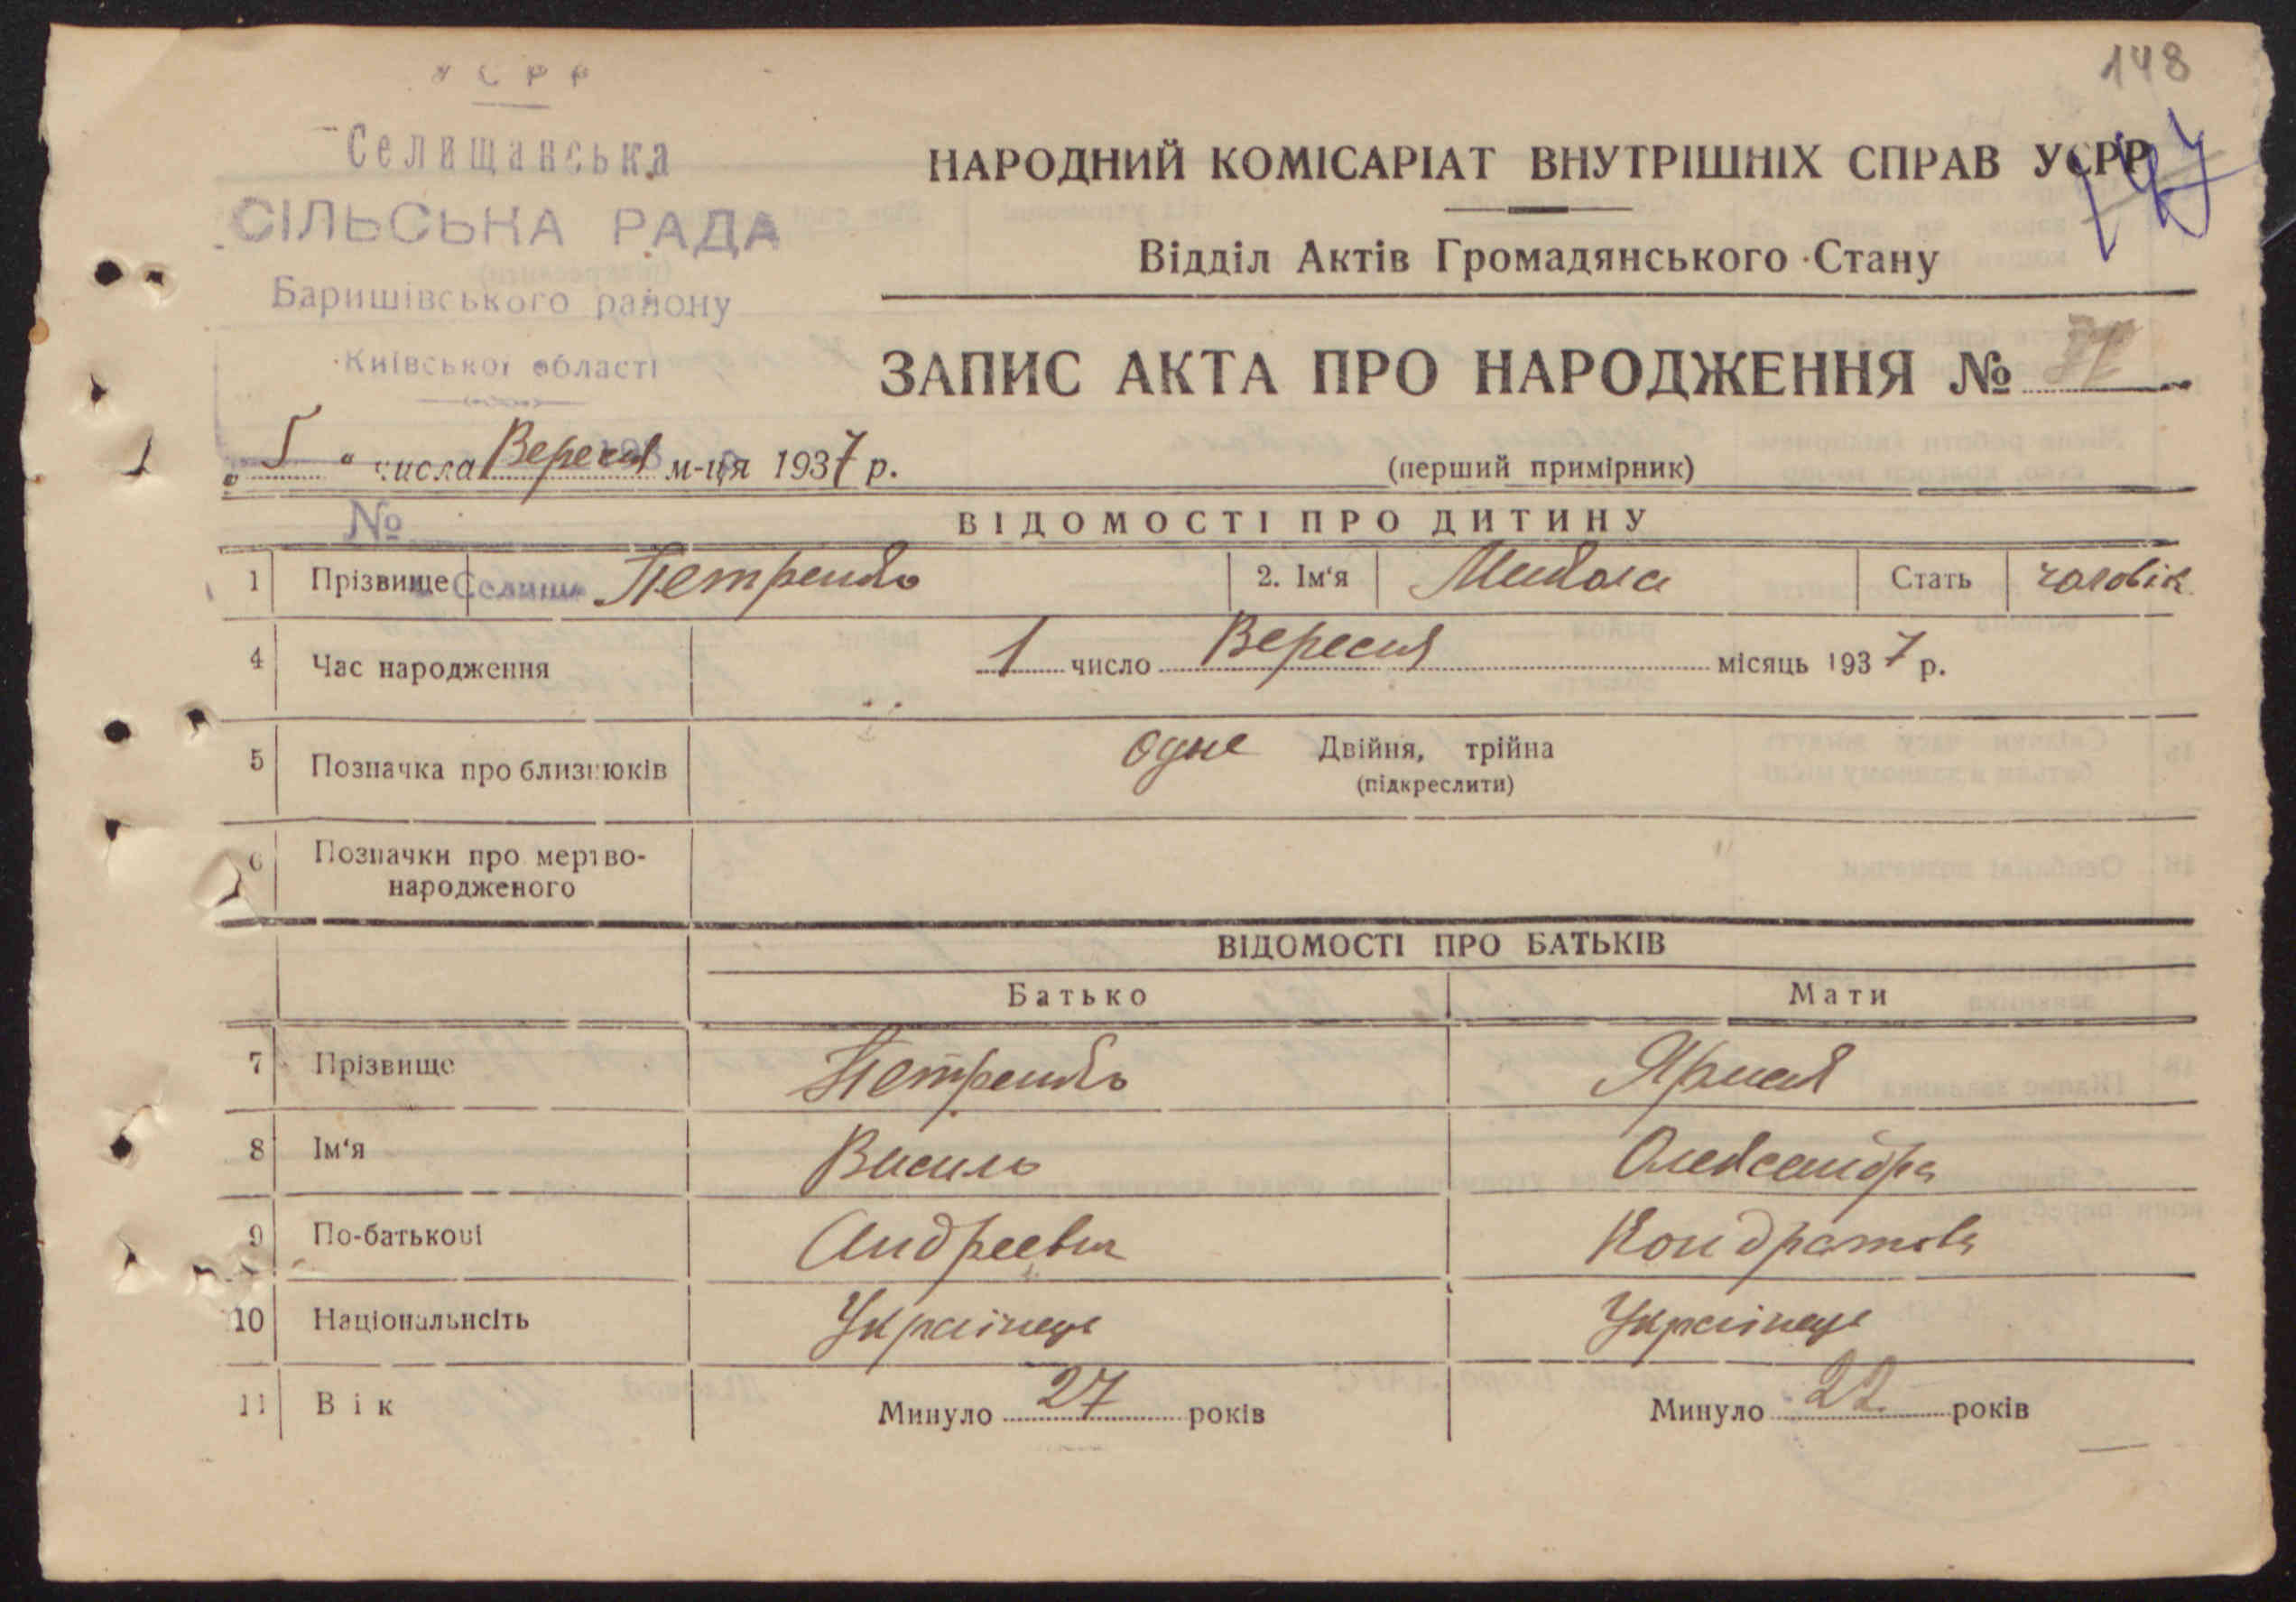 148
УСРР
Селищанська
СІЛЬСЬКА РАДА
Баришівського району
Київської області
НАРОДНИЙ КОМІСАРІАТ ВНУТРІШНІХ СПРАВ УСРР
147
Відділ Актів Громадянського Стану
ЗАПИС АКТА ПРО НАРОДЖЕННЯ №
„ 5 " числа Вересня м-ця 1937 р.
(перший примірник)
№
ВІДОМОСТІ ПРО ДИТИНУ
1 Прізвище Петренко 2. Ім'я Микола Стать чоловік
4 Час народження 1 число Вересня місяць 1937 р.
5 Позначка про близнюків одне Двійня, трійна
(підкреслити)
6 Позначки про мертво-
народженого
ВІДОМОСТІ ПРО БАТЬКІВ
Батько Мати
7 Прізвище Петренко
8 Ім'я Василь Олександра
9 По-батькові Андреевич
10 Національнсіть Українець Українець
11 Вік Минуло 27 років Минуло 22 років